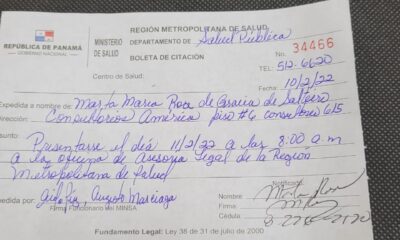 REPÚBLICA DE PANAMÁ
GOBIERNO NACIONAL
MINISTERIO
DE SALUD
REGIÓN METROPOLITANA DE SALUD
DEPARTAMENTO DE Salud Pública
BOLETA DE CITACIÓN
No. 34466
TEL. 512-6620
Centro de Salud:
Fecha: 10/2/22
Expedida a nombre de: Marta María Roca de
Dirección: Consultorios América piso #6 consultorio 615
Presentarse el día 11/2/22 a las 8:00 a.m
a la oficina de Asesoría Legal de la Región
Metropolitana de Salud
Augusto Marciaga
Firma Funcionario del MINSA
Nombre:
Firma:
Cédula:
Fundamento Legal: Ley 38 de 31 de julio de 2000